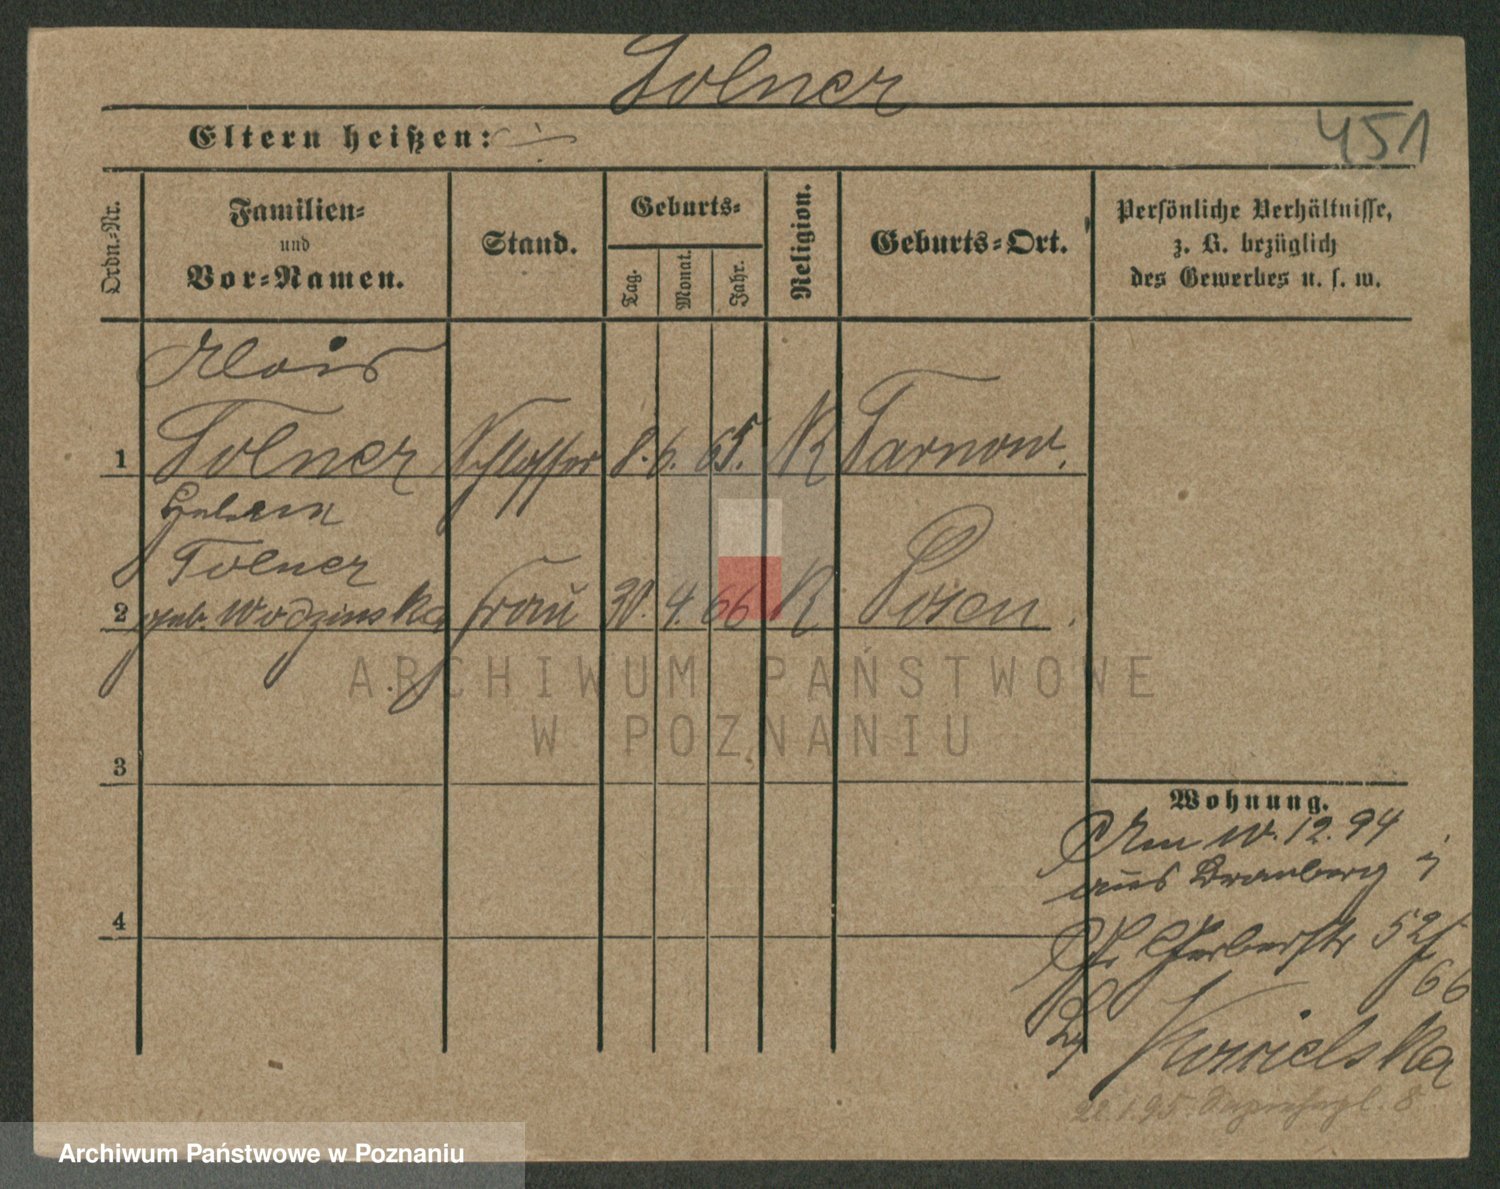 Tolner
451
Eltern heißen:
Ordn.-Nr.
Familien-
und
Vor-Namen.
Stand.
Geburts-
Tag.
Monat.
Jahr.
Religion.
Geburts-Ort.
Persönliche Verhältnisse,
z. B. bezüglich
des Gewerbes u. s. w.
Alois
1 Tolner Schlosser 8. 6. 65. K Tarnow.
Tolner
2 geb. Wodzinska Frau 30. 4. 66 K Posen.
ARCHIWUM PAŃSTWOWE
W POZNANIU
3
Wohnung.
Am 10. 12. 94
aus
4
Gerberstr 52/
66
22.1.95 8
Archiwum Państwowe w Poznaniu